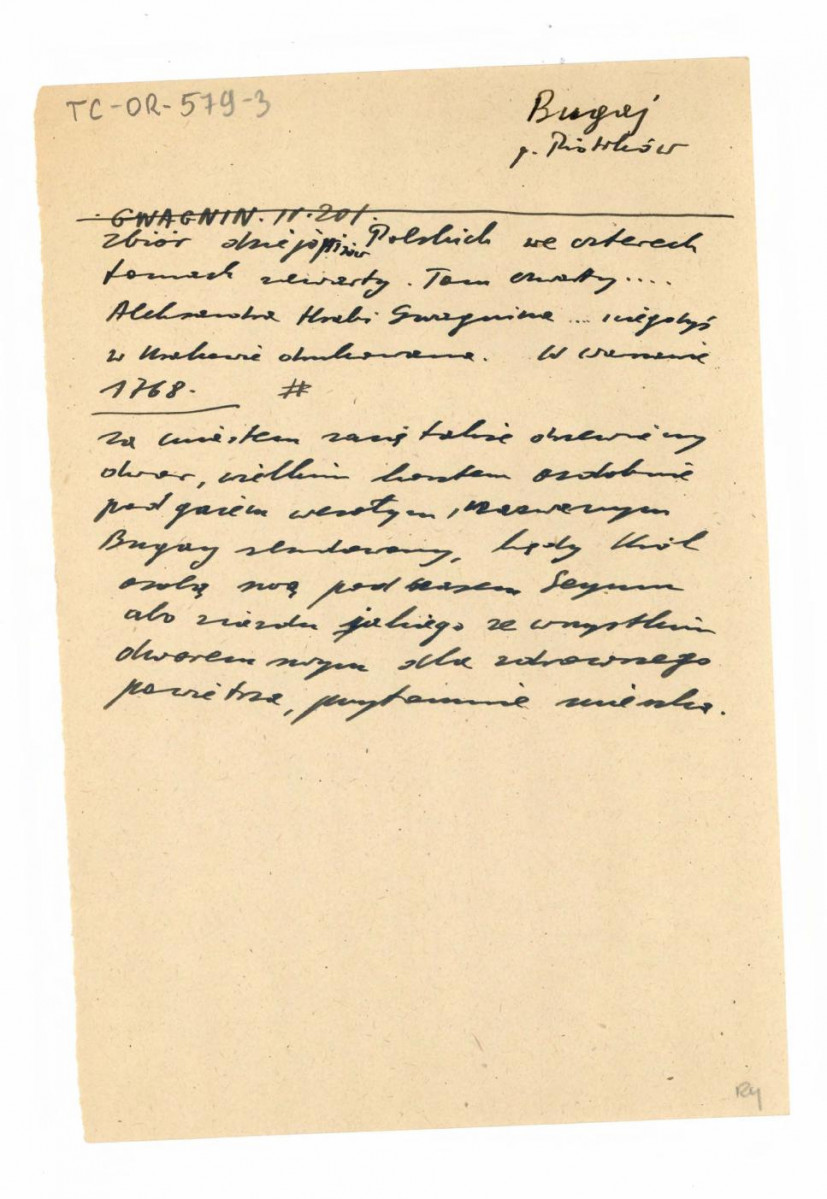 TC-OR-579-3
Bugaj
p. Piotrków
GWAGNIN. II. 201.
Zbiór dziejopisów Polskich we czterech
tomach zawarty. Tom czwarty ....
Aleksandra Hrabi Gwagnina ... niegdyś
w Krakowie drukowana. W Warszawie
1768. #
za miastem zasię także drzewiany
dwor, wielkim kosztem ozdobnie
pod gaiem wesołym, nazwanym
Bugay zbudowany, kędy Król
osobą swą pod czasem Seymu
abo ziazdu jakiego ze wszystkim
dworem swym dla zdrowszego
powietrza, przytomnie mieszka.